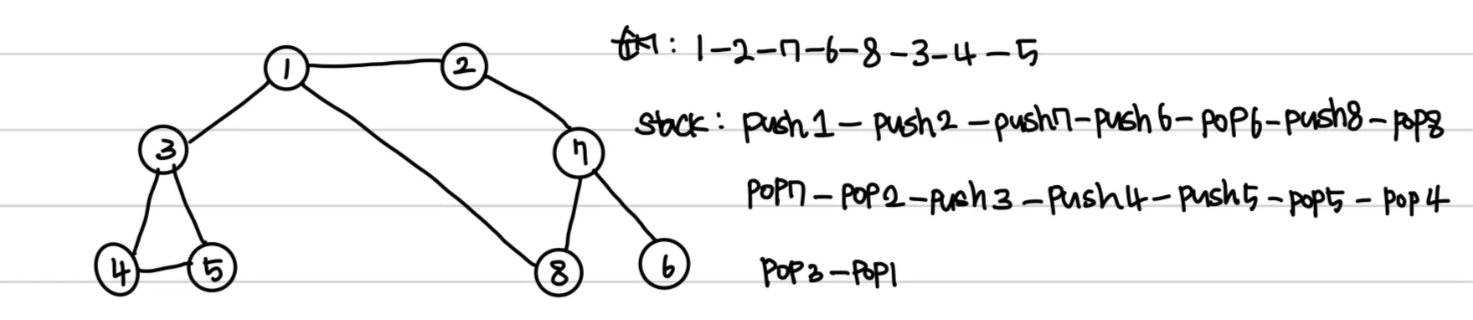 1
2
: 1-2-7-6-8-3-4-5
stack: push1 - push2 - push7 - push6 - pop6 - push8 - pop8
3
7
pop7 - pop2 - push3 - push4 - push5 - pop5 - pop4
4
5
8
6
pop3 - pop1